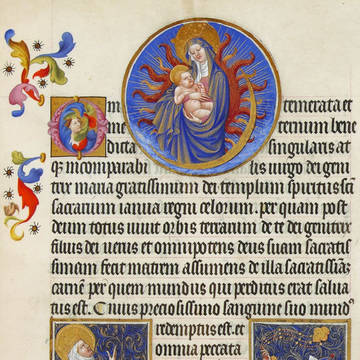 O in temerata et
in e ternum bene
dicta singularis at
qꝫ incomparabi lis uirgo dei geni
trix maria gratissimum dei templum spiritus sc̄i
sacrarium ianua regni celorum. per quam post
deum totus uiuit orbis terrarum de te dei genitrix
filius dei uerus et omnipotens deus suam sacratis
simam fecit matrem assumens de illa sacratissimā
carnē per quem mundus qui perditus erat salua
tus est. Cuius preciosissimo sanguine suo mundꝰ
redemptus est. et
omnia peccata